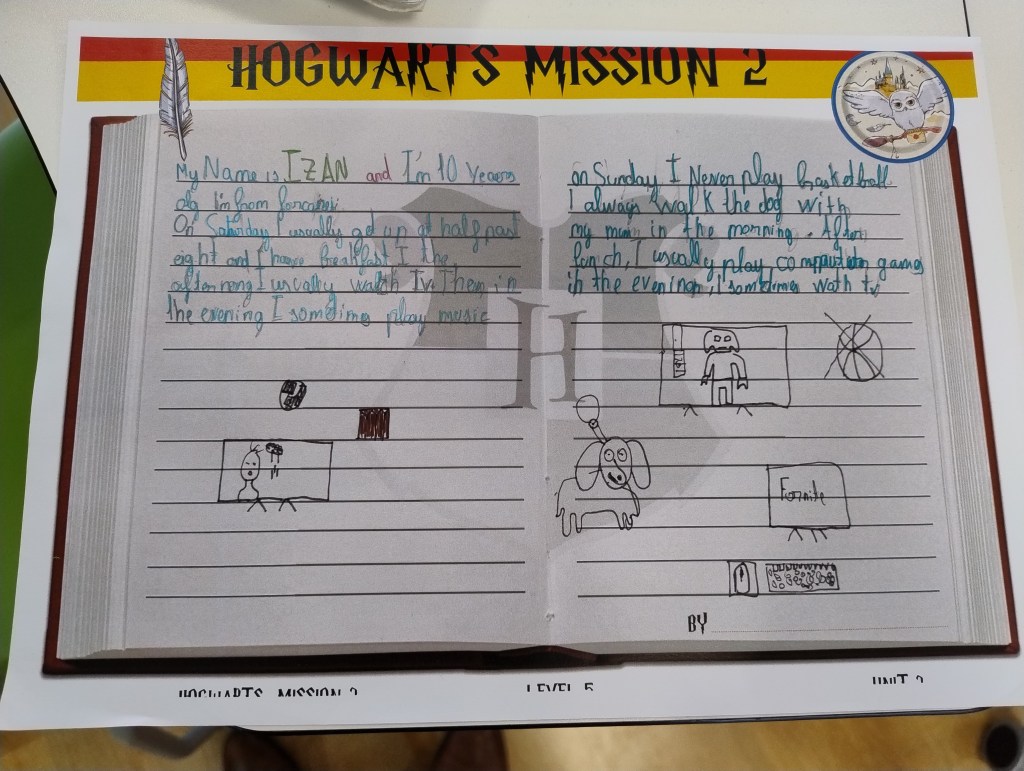 HOGWARTS MISSION 2
My Name is IZAN and I'm 10 Yeaers
old I'm from
On Saturday I usually get up at half past
eight and I have breakfast I the
afternong I usually watch tv Then in
the evening I somtimes play music
on Sunday I Never play basketball
I always walk the dog with
my mum in the morning. After
lunch, I usually play computer games
in the evening, I sometimes wath tv
Fornite
H
BY
HOGWARTS MISSION 2
LEVEL 5
UNIT 2